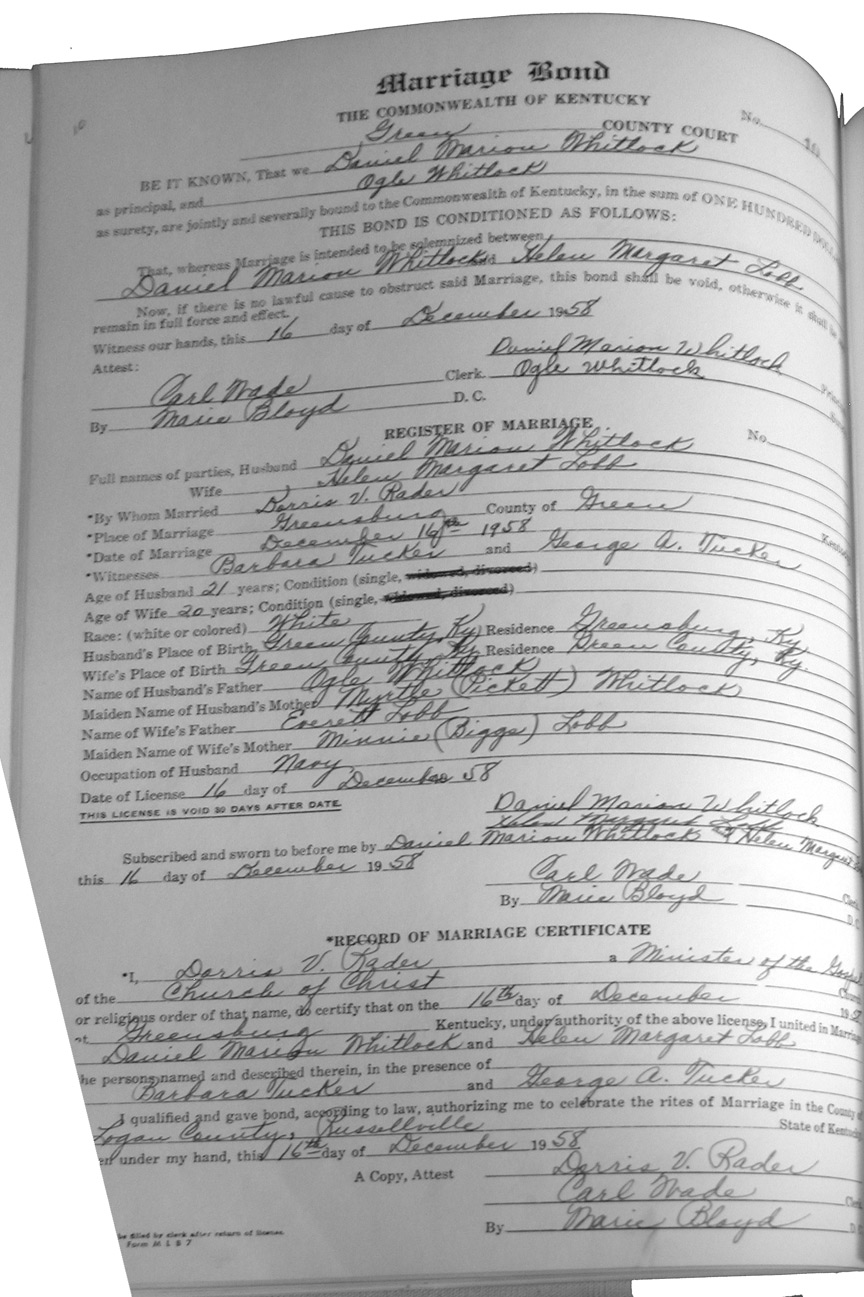 10
Marriage Bond
THE COMMONWEALTH OF KENTUCKY
No. 10
Green COUNTY COURT
BE IT KNOWN, That we Daniel Marion Whitlock
as principal, and Ogle Whitlock
as surety, are jointly and severally bound to the Commonwealth of Kentucky, in the sum of ONE HUNDRED
THIS BOND IS CONDITIONED AS FOLLOWS:
That, whereas Marriage is intended to be solemnized between
Daniel Marion Whitlock and Helen Margaret Lobb
Now, if there is no lawful cause to obstruct said Marriage, this bond shall be void, otherwise it shall
remain in full force and effect.
Witness our hands, this 16 day of December 1958
Attest: Daniel Marion Whitlock
Carl Wade Clerk. Ogle Whitlock
By Marie Bloyd D. C.
REGISTER OF MARRIAGE
No.
Full names of parties, Husband Daniel Marion Whitlock
Wife Helen Margaret Lobb
*By Whom Married Dorris V. Rader
*Place of Marriage Greensburg County of Green
*Date of Marriage December 16th 1958
*Witnesses Barbara Tucker and George A. Tucker
Age of Husband 21 years; Condition (single, widowed, divorced)
Age of Wife 20 years; Condition (single, widowed, divorced)
Race: (white or colored) White
Husband's Place of Birth Green County, Ky Residence Greensburg, Ky
Wife's Place of Birth Green County, Ky Residence Green County, Ky
Name of Husband's Father Ogle Whitlock
Maiden Name of Husband's Mother Myrtle (Pickett) Whitlock
Name of Wife's Father Everett Lobb
Maiden Name of Wife's Mother Minnie (Biggs) Lobb
Occupation of Husband Navy
Date of License 16 day of December 58
THIS LICENSE IS VOID 30 DAYS AFTER DATE.
Daniel Marion Whitlock
Helen Margaret Lobb
Subscribed and sworn to before me by Daniel Marion Whitlock & Helen Margaret
this 16 day of December 1958
Carl Wade
By Marie Bloyd
*RECORD OF MARRIAGE CERTIFICATE
*I, Dorris V. Rader a Minister of the Gospel
of the Church of Christ
or religious order of that name, do certify that on the 16th day of December
at Greensburg Kentucky, under authority of the above license, I united in Marriage
Daniel Marion Whitlock and Helen Margaret Lobb
he persons named and described therein, in the presence of
Barbara Tucker and George A. Tucker
I qualified and gave bond, according to law, authorizing me to celebrate the rites of Marriage in the County of
Logan County, Russellville State of Kentucky
en under my hand, this 16th day of December 1958
Dorris V. Rader
A Copy, Attest Carl Wade
By Marie Bloyd
be filled by clerk after return of license.
Form M 1 5 7